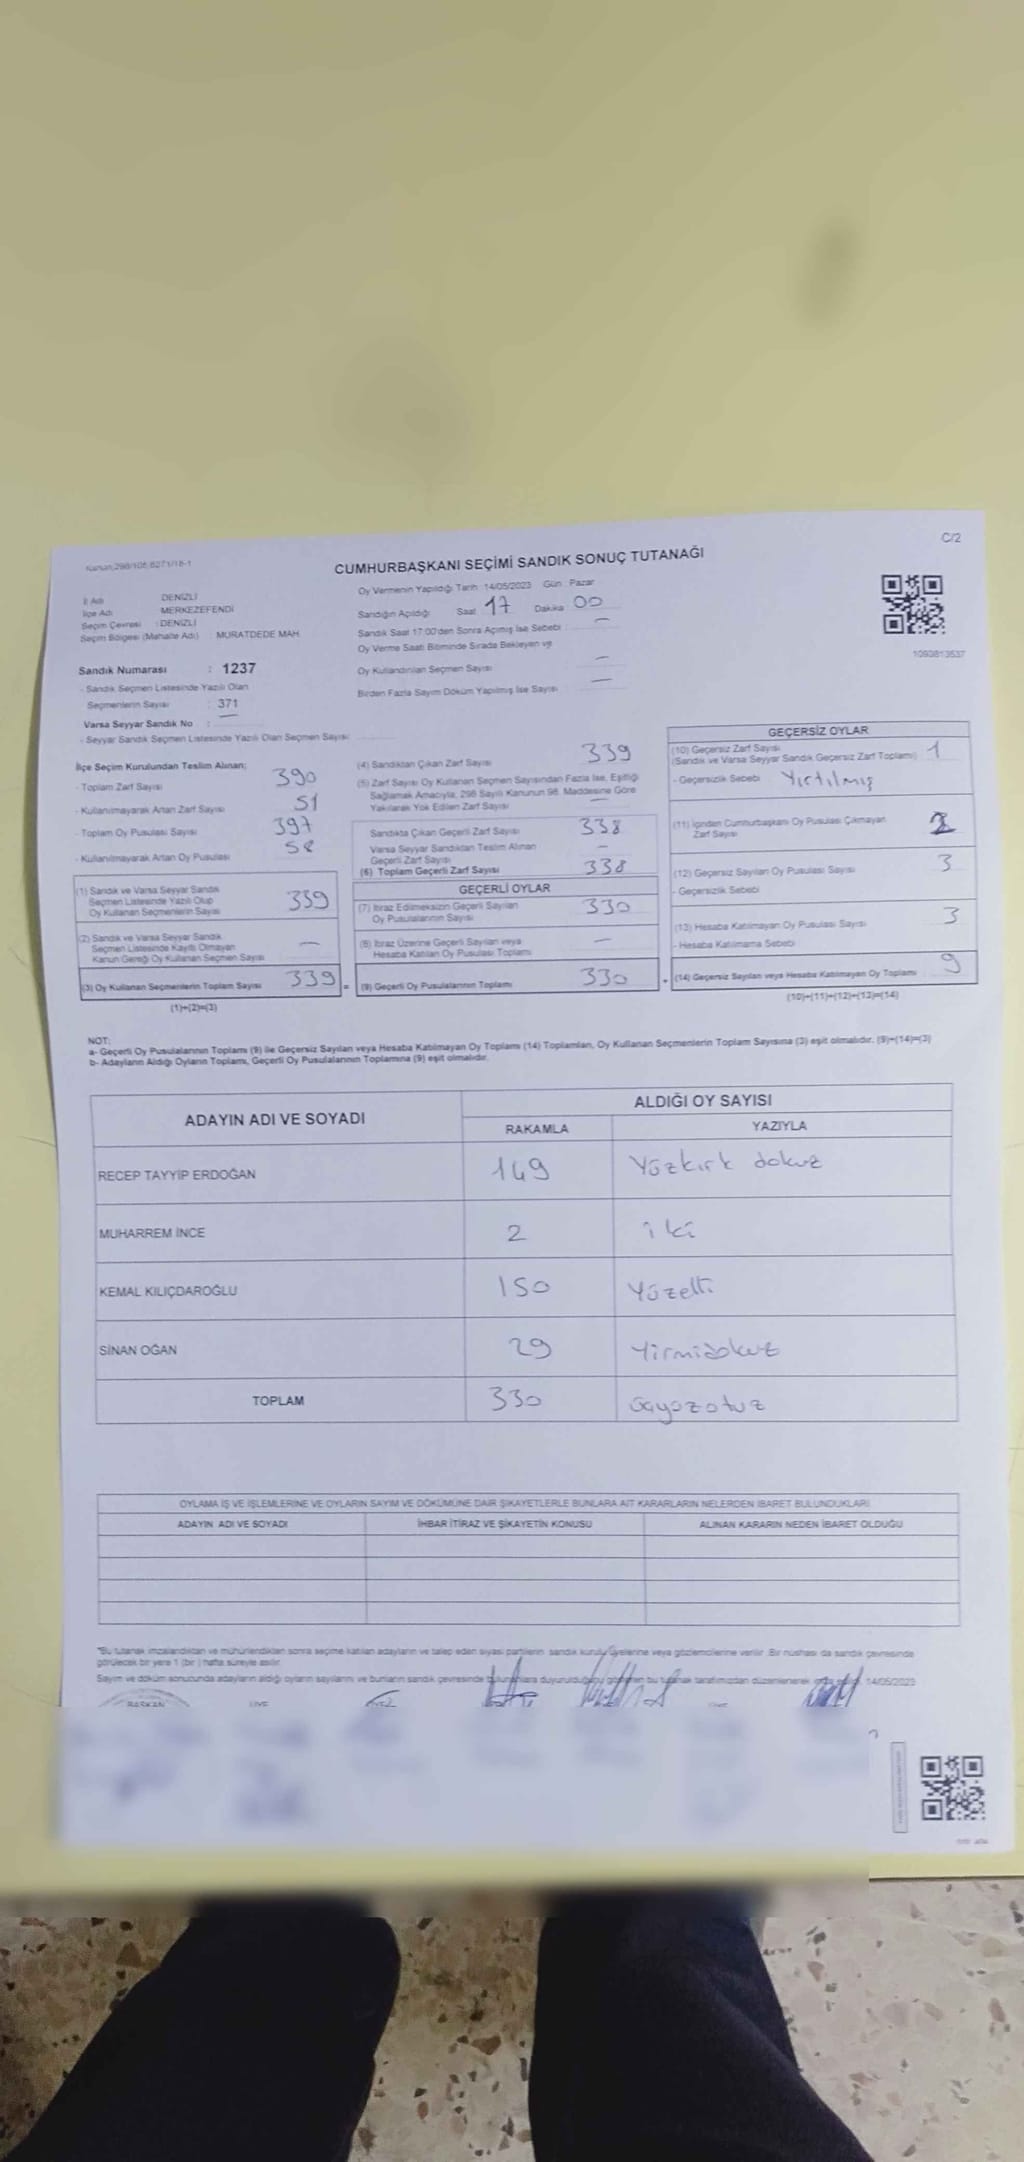 C/2
CUMHURBAŞKANI SEÇİMİ SANDIK SONUÇ TUTANAĞI
İl Adı DENİZLİ
İlçe Adı MERKEZEFENDİ
Seçim Çevresi : DENİZLİ
Seçim Bölgesi (Mahalle Adı) : MURATDEDE MAH.
Oy Vermenin Yapıldığı Tarih 14/05/2023 Gün : Pazar
Sandığın Açıldığı Saat 17 Dakika 00
Sandık Saat 17:00'den Sonra Açılmış İse Sebebi : —
Oy Verme Saati Bitiminde Sırada Bekleyen ve
Oy Kullandırılan Seçmen Sayısı —
Birden Fazla Sayım Döküm Yapılmış İse Sayısı —
1090813537
Sandık Numarası : 1237
- Sandık Seçmen Listesinde Yazılı Olan
Seçmenlerin Sayısı : 371
Varsa Seyyar Sandık No : —
- Seyyar Sandık Seçmen Listesinde Yazılı Olan Seçmen Sayısı:
İlçe Seçim Kurulundan Teslim Alınan;
- Toplam Zarf Sayısı 390
- Kullanılmayarak Artan Zarf Sayısı 51
- Toplam Oy Pusulası Sayısı 397
- Kullanılmayarak Artan Oy Pusulası 58
(1) Sandık ve Varsa Seyyar Sandık
Seçmen Listesinde Yazılı Olup
Oy Kullanan Seçmenlerin Sayısı 339
(2) Sandık ve Varsa Seyyar Sandık
Seçmen Listesinde Kayıtlı Olmayan
Kanun Gereği Oy Kullanan Seçmen Sayısı —
(3) Oy Kullanan Seçmenlerin Toplam Sayısı 339 =
(1)+(2)=(3)
(4) Sandıktan Çıkan Zarf Sayısı 339
(5) Zarf Sayısı Oy Kullanan Seçmen Sayısından Fazla İse, Eşitliği
Sağlamak Amacıyla; 298 Sayılı Kanunun 98. Maddesine Göre
Yakılarak Yok Edilen Zarf Sayısı —
Sandıkta Çıkan Geçerli Zarf Sayısı 338
Varsa Seyyar Sandıktan Teslim Alınan
Geçerli Zarf Sayısı —
(6) Toplam Geçerli Zarf Sayısı 338
GEÇERLİ OYLAR
(7) İtiraz Edilmeksizin Geçerli Sayılan
Oy Pusulalarının Sayısı 330
(8) İtiraz Üzerine Geçerli Sayılan veya
Hesaba Katılan Oy Pusulası Toplamı —
(9) Geçerli Oy Pusulalarının Toplamı 330 +
GEÇERSİZ OYLAR
(10) Geçersiz Zarf Sayısı
(Sandık ve Varsa Seyyar Sandık Geçersiz Zarf Toplamı) 1
- Geçersizlik Sebebi Yırtılmış
(11) İçinden Cumhurbaşkanı Oy Pusulası Çıkmayan
Zarf Sayısı 2
(12) Geçersiz Sayılan Oy Pusulası Sayısı 3
- Geçersizlik Sebebi
(13) Hesaba Katılmayan Oy Pusulası Sayısı 3
- Hesaba Katılmama Sebebi
(14) Geçersiz Sayılan veya Hesaba Katılmayan Oy Toplamı 9
(10)+(11)+(12)+(13)=(14)
NOT:
a- Geçerli Oy Pusulalarının Toplamı (9) ile Geçersiz Sayılan veya Hesaba Katılmayan Oy Toplamı (14) Toplamları, Oy Kullanan Seçmenlerin Toplam Sayısına (3) eşit olmalıdır. (9)+(14)=(3)
b- Adayların Aldığı Oyların Toplamı, Geçerli Oy Pusulalarının Toplamına (9) eşit olmalıdır.
ADAYIN ADI VE SOYADI ALDIĞI OY SAYISI
RAKAMLA YAZIYLA
RECEP TAYYİP ERDOĞAN 149 Yüzkırk dokuz
MUHARREM İNCE 2 iki
KEMAL KILIÇDAROĞLU 150 Yüzelli
SİNAN OĞAN 29 Yirmidokuz
TOPLAM 330 üçyüzotuz
OYLAMA İŞ VE İŞLEMLERİNE VE OYLARIN SAYIM VE DÖKÜMÜNE DAİR ŞİKAYETLERLE BUNLARA AİT KARARLARIN NELERDEN İBARET BULUNDUKLARI
ADAYIN ADI VE SOYADI İHBAR İTİRAZ VE ŞİKAYETİN KONUSU ALINAN KARARIN NEDEN İBARET OLDUĞU
*Bu tutanak imzalandıktan ve mühürlendikten sonra seçime katılan adayların ve talep eden siyasi partilerin sandık kurulu üyelerine veya gözlemcilerine verilir. Bir nüshası da sandık çevresinde
görülecek bir yere 1 (bir) hafta süreyle asılır.
Sayım ve döküm sonucunda adayların aldığı oyların sayılarını ve bunların sandık çevresinde bulunanlara duyurulduğunu gösteren bu tutanak tarafımızdan düzenlenerek 14/05/2023
BAŞKAN ÜYE